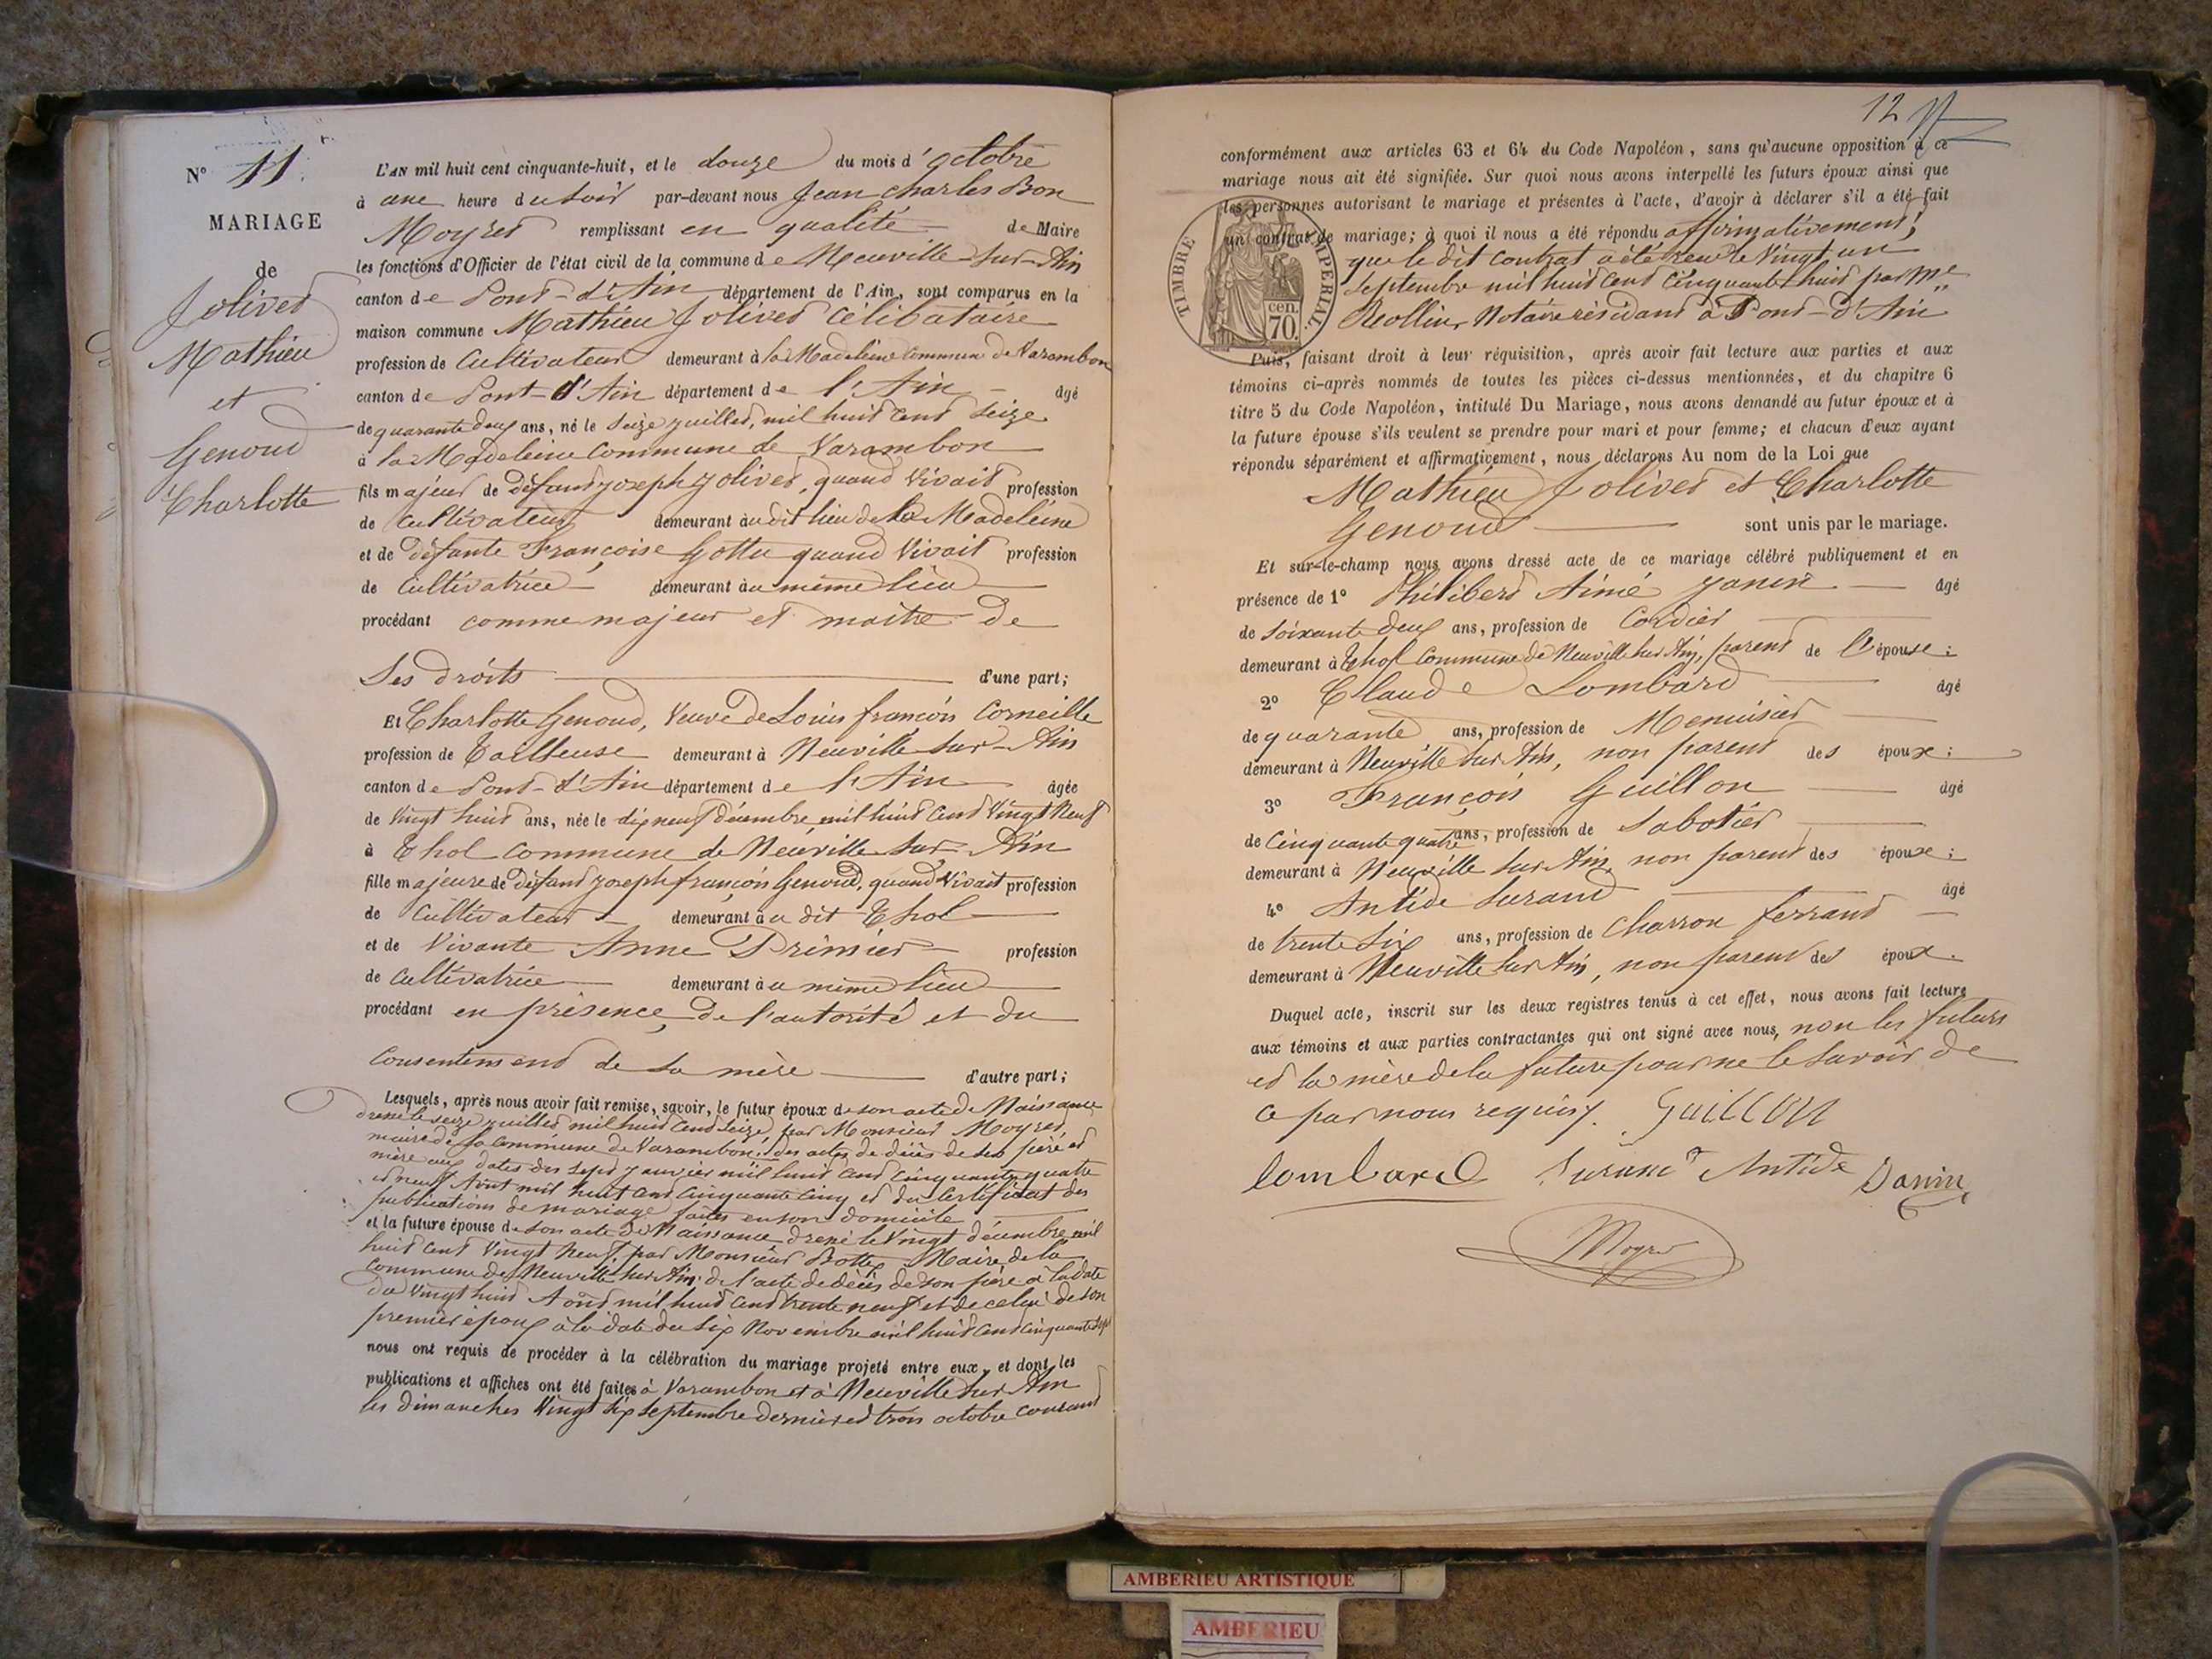 N° 11.
MARIAGE
de
Jolivet
Mathieu
et
Genoud
Charlotte
L'AN mil huit cent cinquante-huit, et le douze du mois d'octobre
à une heure du soir par-devant nous Jean Charles Bon
Moyret remplissant en qualité de Maire
les fonctions d'Officier de l'état civil de la commune de Neuville-sur-Ain
canton de Pont-d'Ain département de l'Ain, sont comparus en la
maison commune Mathieu Jolivet célibataire
profession de Cultivateur demeurant à la Madeleine commune de Varambon
canton de Pont-d'Ain département de l'Ain âgé
de quarante deux ans, né le seize juillet, mil huit cent seize
à la Madeleine commune de Varambon
fils majeur de défunt joseph jolivet, quand vivait profession
de cultivateur demeurant au dit lieu de la Madeleine
et de défunte Françoise Gottu quand vivait profession
de cultivatrice demeurant au même lieu
procédant comme majeur et maitre de
Ses droits d'une part;
Et Charlotte Genoud, Veuve de Louis françois Corneille
profession de Tailleuse demeurant à Neuville sur-Ain
canton de Pont-d'Ain département de l'Ain âgée
de vingt huit ans, née le dix neuf décembre mil huit cent vingt neuf
à Thol commune de Neuville sur Ain
fille majeure de défunt joseph françois Genoud, quand vivait profession
de cultivateur demeurant au dit Thol
et de vivante Anne Prémier profession
de cultivatrice demeurant au même lieu
procédant en présence, de l'autorité et du
Consentement de sa mère d'autre part;
Lesquels, après nous avoir fait remise, savoir, le futur époux de son acte de Naissance
dressé le seize juillet mil huit cent seize par Monsieur Moyret,
maire de la commune de Varambon, des actes de décès de ses père et
mère aux dates des sept janvier mil huit cent cinquante quatre
et neuf Août mil huit cent cinquante cinq et du certificat des
publications de mariage faites en son domicile
et la future épouse de son acte de Naissance dressé le vingt décembre mil
huit cent vingt neuf, par Monsieur Bottex Maire de la
commune de Neuville sur Ain, de l'acte de décès de son père à la date
du vingt huit Août mil huit cent trente neuf et de celui de son
premier époux à la date du six Novembre mil huit cent cinquante sept
nous ont requis de procéder à la célébration du mariage projeté entre eux, et dont les
publications et affiches ont été faites à Varambon et à Neuville sur Ain
les dimanches vingt six septembre dernier et trois octobre courant
12
conformément aux articles 63 et 64 du Code Napoléon, sans qu'aucune opposition à ce
mariage nous ait été signifiée. Sur quoi nous avons interpellé les futurs époux ainsi que
les personnes autorisant le mariage et présentes à l'acte, d'avoir à déclarer s'il a été fait
un contrat de mariage; à quoi il nous a été répondu affirmativement,
que le dit contrat a été reçu le vingt un
septembre mil huit cent cinquante huit par Me
Reollin, Notaire résidant à Pont-d'Ain
TIMBRE IMPERIAL.
cen.
70.
Puis, faisant droit à leur réquisition, après avoir fait lecture aux parties et aux
témoins ci-après nommés de toutes les pièces ci-dessus mentionnées, et du chapitre 6
titre 5 du Code Napoléon, intitulé Du Mariage, nous avons demandé au futur époux et à
la future épouse s'ils veulent se prendre pour mari et pour femme; et chacun d'eux ayant
répondu séparément et affirmativement, nous déclarons Au nom de la Loi que
Mathieu Jolivet et Charlotte
Genoud sont unis par le mariage.
Et sur-le-champ nous avons dressé acte de ce mariage célébré publiquement et en
présence de 1° Philibert Aimé Janin âgé
de soixante deux ans, profession de Cordier
demeurant à Thol Commune de Neuville sur Ain, parent de l'épouse;
2° Claude Lombard âgé
de quarante ans, profession de Menuisier
demeurant à Neuville sur Ain, non parent des époux;
3° François Guillon âgé
de cinquante quatre ans, profession de Sabotier
demeurant à Neuville sur Ain, non parent des époux;
4° Antide Surand âgé
de trente six ans, profession de Charron ferrand
demeurant à Neuville sur Ain, non parent des époux.
Duquel acte, inscrit sur les deux registres tenus à cet effet, nous avons fait lecture
aux témoins et aux parties contractantes qui ont signé avec nous, non les futurs
et la mère de la future pour ne le savoir de
ce par nous requis. Guillon
lombard Surand Antide Janin
Moyret
AMBERIEU ARTISTIQUE
AMBERIEU